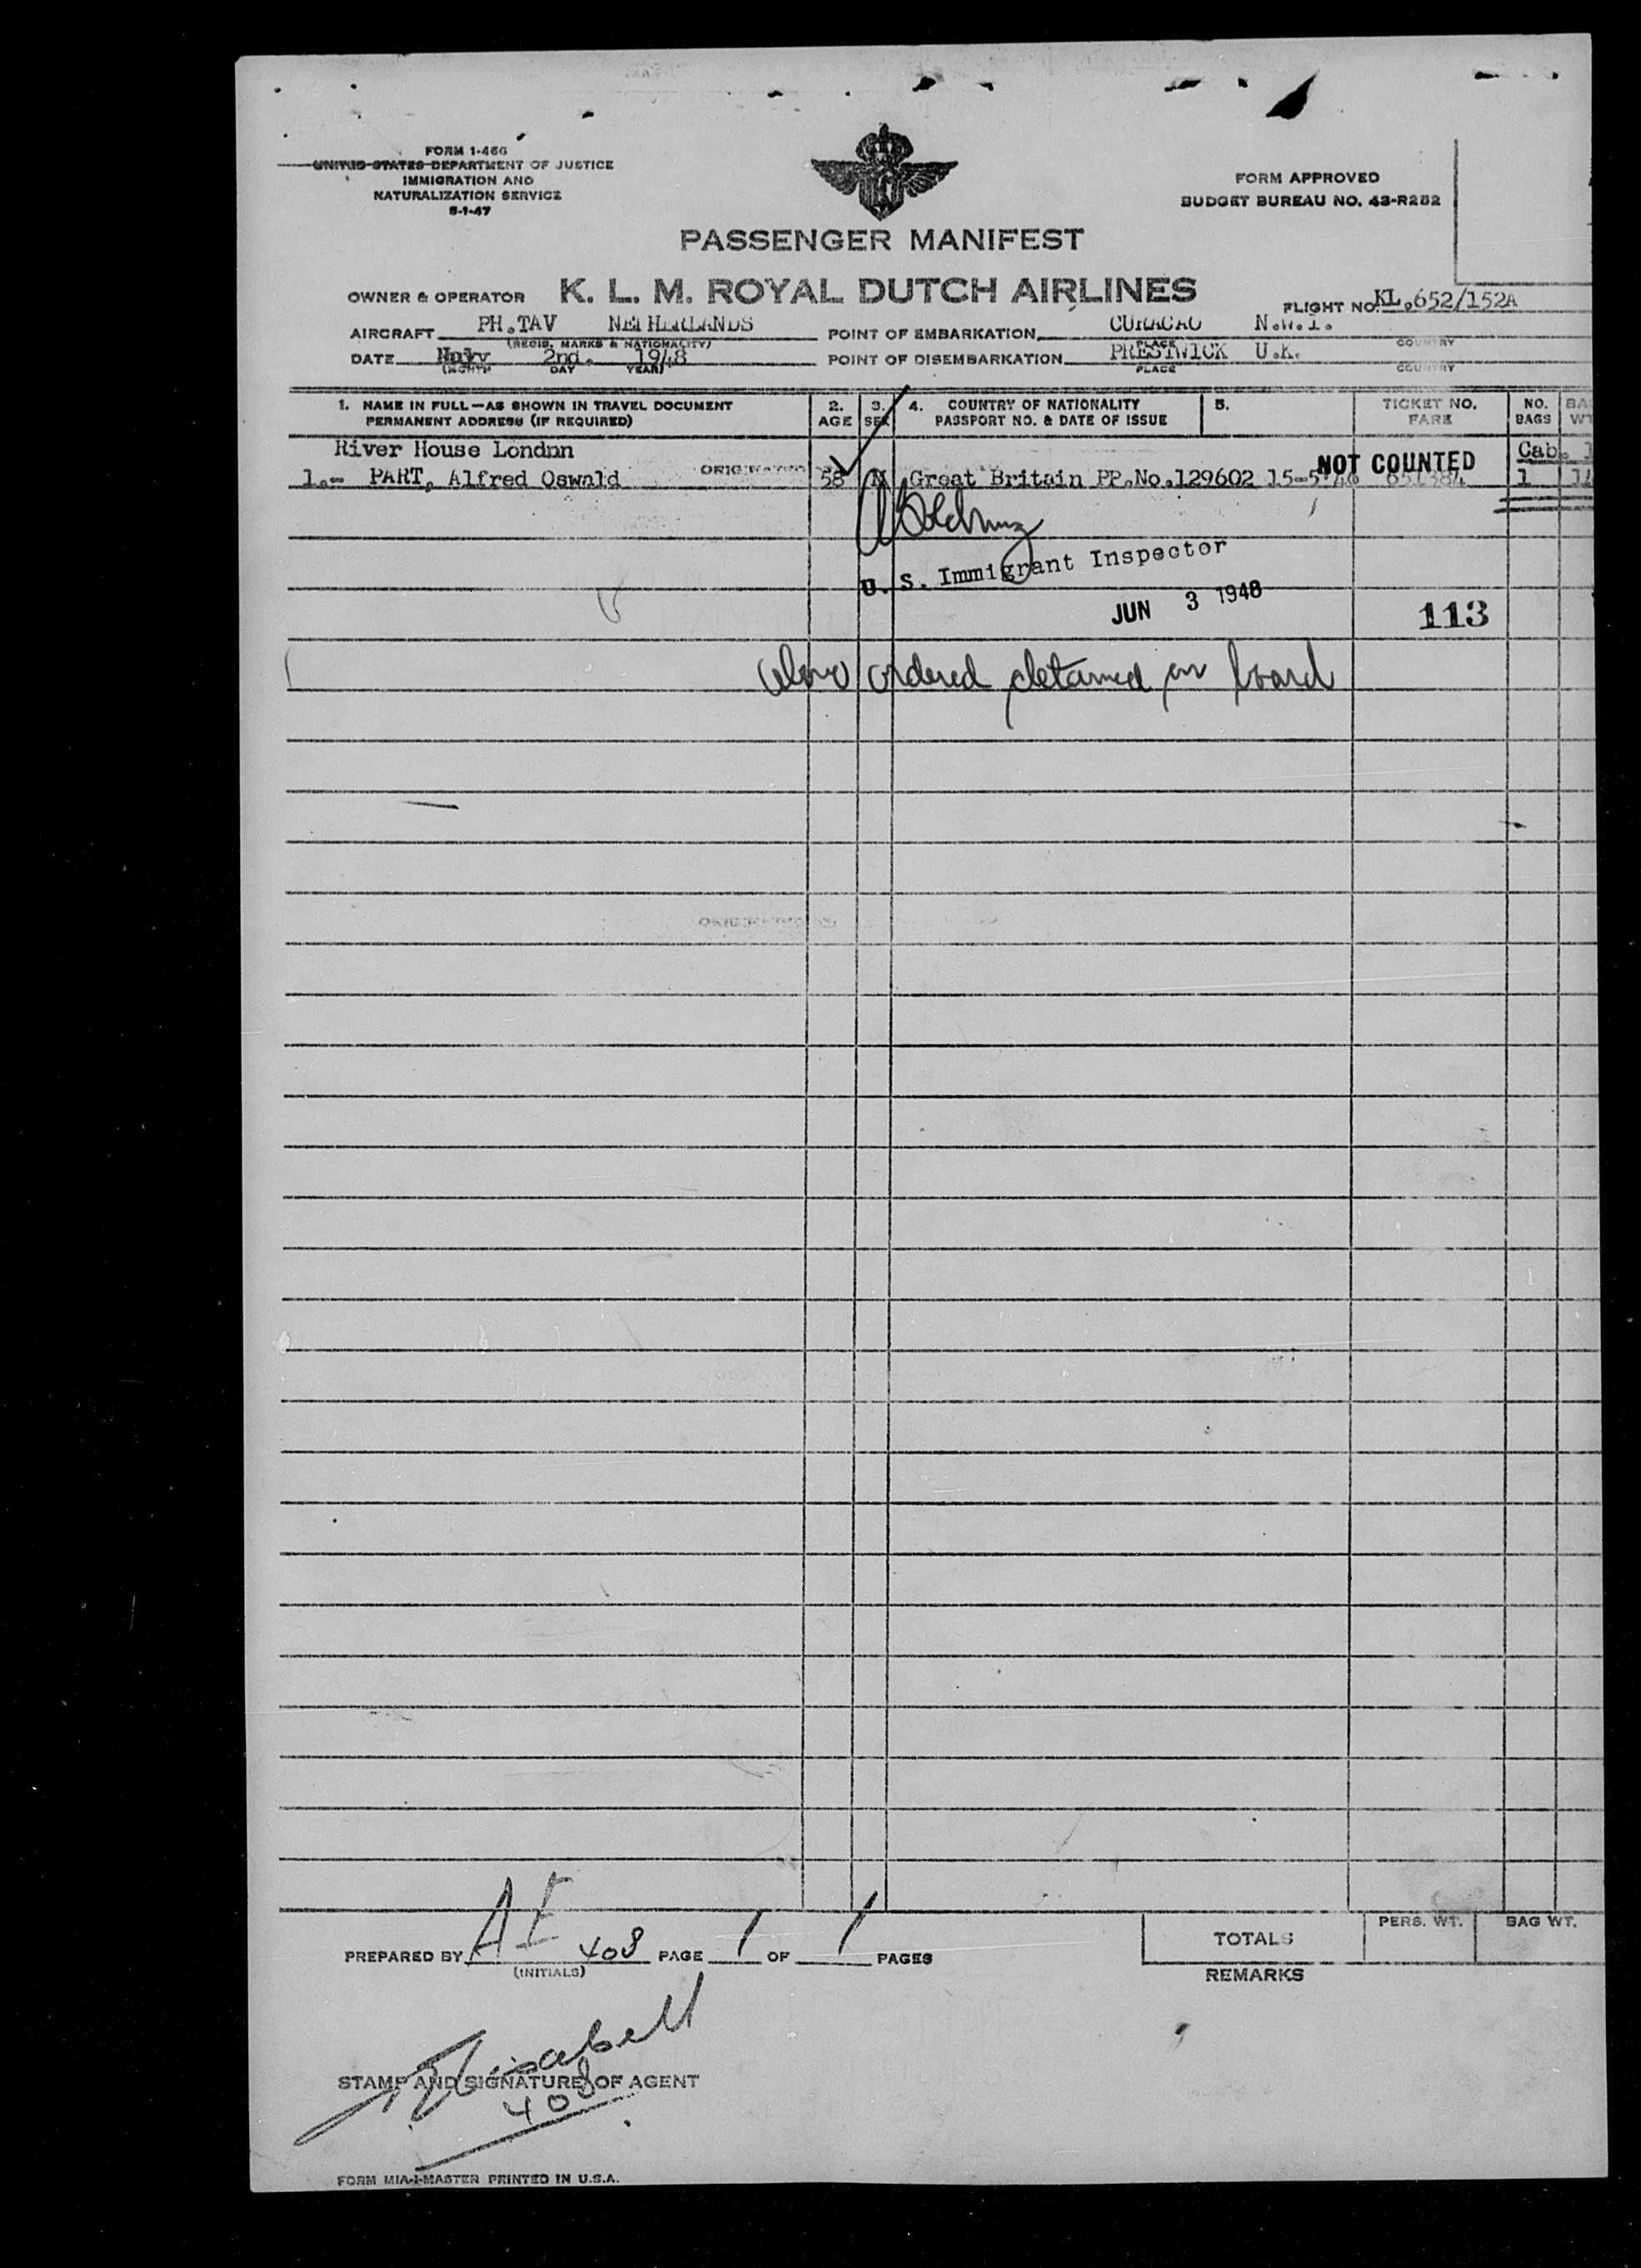 FORM 1-466
UNITED STATES DEPARTMENT OF JUSTICE
IMMIGRATION AND
NATURALIZATION SERVICE
5-1-47
FORM APPROVED
BUDGET BUREAU NO. 43-R252
PASSENGER MANIFEST
OWNER & OPERATOR K. L. M. ROYAL DUTCH AIRLINES
FLIGHT NO. KL.652/152A
AIRCRAFT PH.TAV NETHERLANDS POINT OF EMBARKATION CURACAO N.W.I.
(REGIS. MARKS & NATIONALITY) PLACE COUNTRY
DATE 2nd. 1948 POINT OF DISEMBARKATION PRESTWICK U.K.
(MONTH DAY YEAR) PLACE COUNTRY
1. NAME IN FULL—AS SHOWN IN TRAVEL DOCUMENT 2. 3. 4. COUNTRY OF NATIONALITY 5. TICKET NO. NO. BA
PERMANENT ADDRESS (IF REQUIRED) AGE SEX PASSPORT NO. & DATE OF ISSUE FARE BAGS WT
River House Londnn Cab. 1
1.- PART, Alfred Oswald 58 M Great Britain PP.No.129602 15-5- NOT COUNTED 1
U. S. Immigrant Inspector
JUN 3 1948
113
above ordered detained on board
PREPARED BY 408 PAGE 1 OF 1 PAGES
(INITIALS)
TOTALS PERS. WT. BAG WT.
REMARKS
STAMP AND SIGNATURE OF AGENT
408
FORM MIA-1-MASTER PRINTED IN U.S.A.